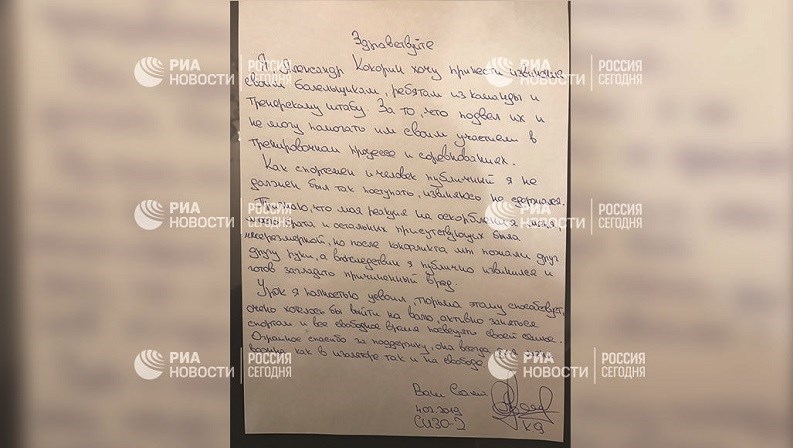 Здравствуйте
Я Александр Кокорин хочу принести извинения
своим болельщикам, ребятам из команды и
тренерскому штабу. За то, что подвел их и
не могу помогать им своим участием в
тренировочном процессе и соревнованиях.
Как спортсмен и человек публичный я не
должен был так поступать, извиняюсь не сдержался.
Признаю, что моя реакция на оскорбления меня,
моего брата и остальных присутствующих была
несоразмерной, но после конфликта мы пожали друг
другу руки, а впоследствии я публично извинился и
готов загладить причиненный вред.
Урок я полностью усвоил, тюрьма этому способствует,
очень хотелось бы выйти на волю, активно заняться
спортом и все свободное время посвещать своей семье.
Огромное спасибо за поддержку, она всегда
важна как в изоляторе так и на свободе
Ваш Саша
4.02.2019
СИЗО-2
К9
РИА НОВОСТИ
РОССИЯ СЕГОДНЯ
РИА НОВОСТИ
РОССИЯ СЕГОДНЯ
РИА НОВОСТИ
РОССИЯ СЕГОДНЯ